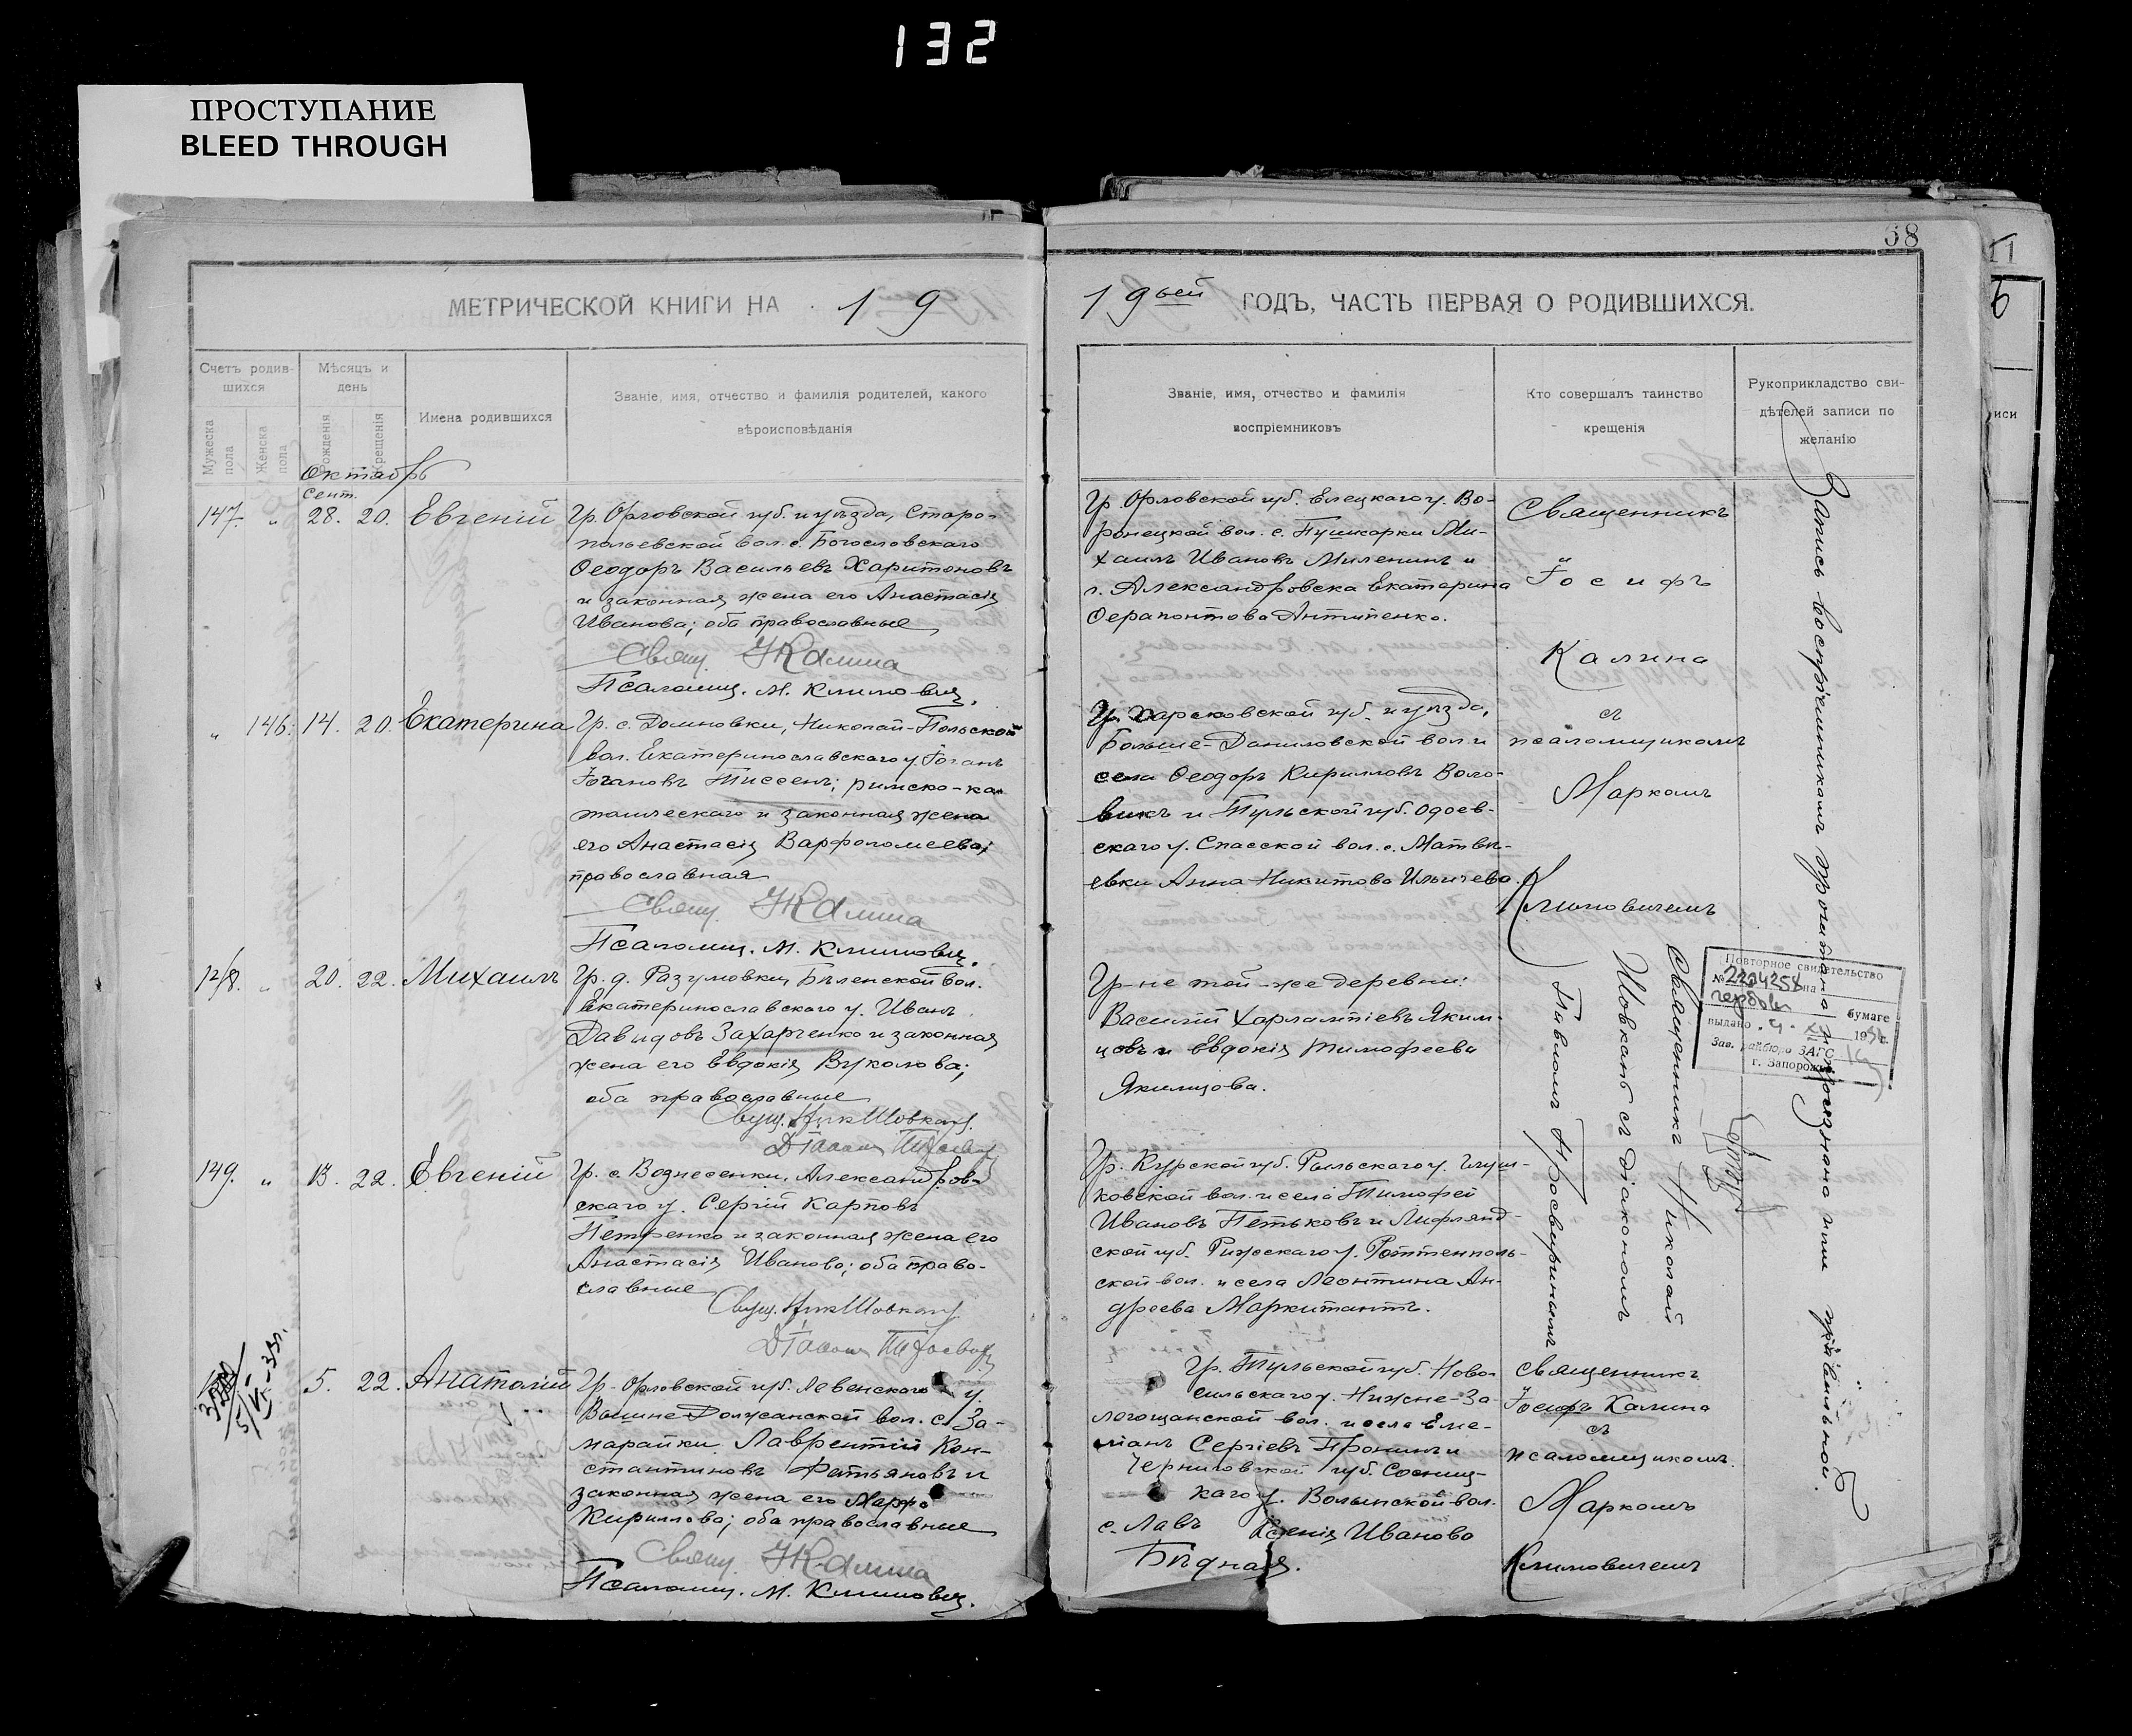 132
ПРОСТУПАНИЕ
BLEED THROUGH
68
МЕТРИЧЕСКОЙ КНИГИ НА 19
19ьей ГОДЪ, ЧАСТЬ ПЕРВАЯ О РОДИВШИХСЯ.
Счетъ родив-
шихся
Мужеска пола
Женска пола
Мѣсяцъ и
день
Рожденія
Крещенія
Имена родившихся
Званіе, имя, отчество и фамилія родителей, какого
вѣроисповѣданія
Званіе, имя, отчество и фамилія
воспріемниковъ
Кто совершалъ таинство
крещенія
Рукоприкладство сви-
дѣтелей записи по
желанію
Октябрь
Сент.
147. „ 28. 20. Евгеній
Гр. Орловской губ. и уѣзда, Старо-
польевской вол. с. Богословскаго
Ѳеодоръ Васильевъ Харитоновъ
и законная жена его Анастасія
Иванова; оба православные
Свящ. І Калина
Псаломщ. М. Климович.
Гр. Орловской губ. Елецкаго у. Во-
ронецкой вол. с. Пушкарки Ми-
хаилъ Ивановъ Миленинъ и
г. Александровска Екатерина
Ѳерапонтова Антипенко.
Священникъ
Іосифъ
Калина
съ
псаломщикомъ
Маркомъ
Климовичемъ
„ 146. 14. 20. Екатерина
Гр. с. Долиновки, Николай-Польской
вол. Екатеринославскаго у. Іоганъ
Іогановъ Тиссенъ; римско-ка-
толическаго и законная жена
его Анастасія Варфоломеева;
православная
Свящ. І Калина
Псаломщ. М. Климович.
Гр. Харьковской губ. и уѣзда,
Больше-Даниловской вол. и
села Ѳеодоръ Кирилловъ Воло-
викъ и Тульской губ. Одоев-
скаго у. Спасской вол. с. Матвѣ-
евки Анна Никитова Ильичева.
148. „ 20. 22. Михаилъ
Гр. д. Разумовки, Бѣленской вол.
Екатеринославскаго у. Иванъ
Давидовъ Захарченко и законная
жена его Евдокія Вуколова;
оба православные
Свящ. Ник Шовкань.
Діаконъ
Гр-не той-же деревни:
Василій Харлампіевъ Яким-
цовъ и Евдокія Тимофеева
Якимцова.
Священникъ Николай
Шовкань съ діакономъ
Павломъ Просвиринымъ
149. „ 13. 22. Евгеній
Гр. с. Вознесенки, Александров-
скаго у. Сергій Карповъ
Петренко и законная жена его
Анастасія Иванова; оба право-
славные
Свящ. Ник Шовкань.
Діаконъ
Гр. Курской губ. Рыльскаго у. Глуш-
ковской вол. и села Тимофей
Ивановъ Петьковъ и Лифлянд-
ской губ. Рижскаго у. Роттенполь-
ской вол. и села Леонтина Ан-
дреева Маркитантъ.
5. 22. Анатолій
Гр. Орловской губ. Ливенскаго у.
Вышне-Должанской вол. с. За-
марайки Лаврентій Кон-
стантиновъ Фатьяновъ и
законная жена его Марфа
Кириллова; оба православные
Свящ. І Калина
Псаломщ. М. Климович.
Гр. Тульской губ. Ново-
сильскаго у. Нижне-За-
легощанской вол. и села Еме-
ліанъ Сергіевъ Пронинъ и
Черниговской губ. Сосниц-
каго у. Волынской вол.
с. Лавъ Ксенія Иванова
Бѣдная.
Священникъ
Іосифъ Калина
съ
псаломщикомъ
Маркомъ
Климовичемъ
Запись воспріемникамъ прочитана и признана ими правильной.
Повторное свидетельство
№ 2204258 на
бумаге
выдано
Зав. райбюро ЗАГС
г. Запорожья